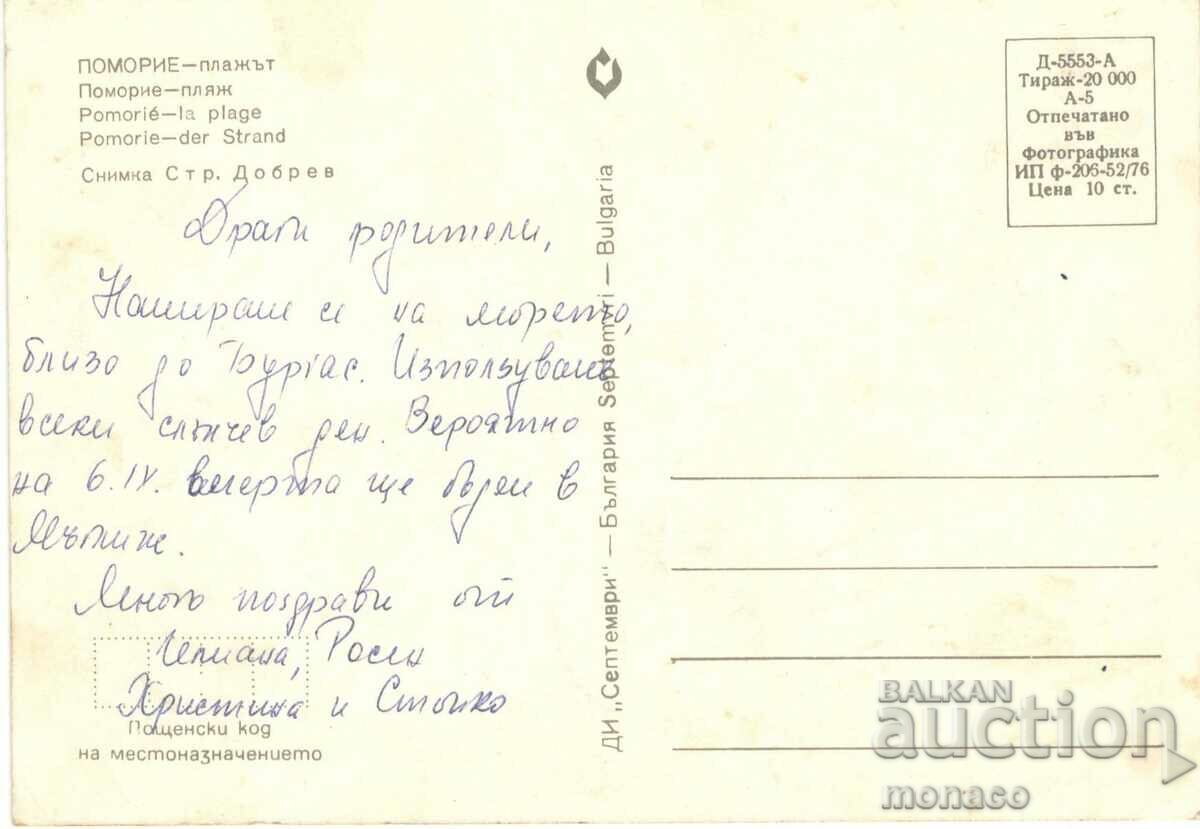 ПОМОРИЕ—плажът
Поморие—пляж
Pomorié—la plage
Pomorie—der Strand
Снимка Стр. Добрев
Драги родители,
Намираме се на морето,
близо до Бургас. Използуваме
всеки слънчев ден. Вероятно
на 6.IX. вечерта ще бъдем в
Мъглиж.
Много поздрави от
Росен
Христина и Стойко
Пощенски код
на местоназначението
ДИ „Септември" — България Septemvri — Bulgaria
Д-5553-А
Тираж-20 000
А-5
Отпечатано
във
Фотографика
ИП ф-206-52/76
Цена 10 ст.
BALKAN
auction
monaco